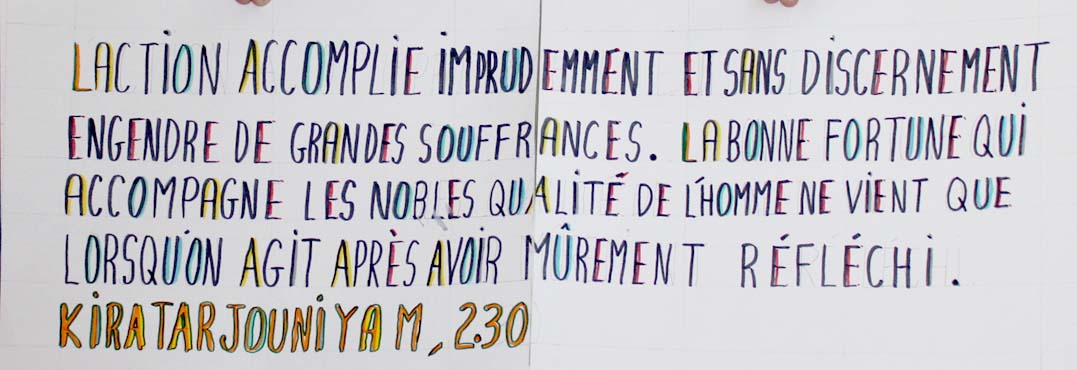 LACTION ACCOMPLIE IMPRUDEMMENT ET SANS DISCERNEMENT
ENGENDRE DE GRANDES SOUFFRANCES. LA BONNE FORTUNE QUI
ACCOMPAGNE LES NOBLES QUALITÉ DE L'HOMME NE VIENT QUE
LORSQU'ON AGIT APRÈS AVOIR MÛREMENT RÉFLÉCHI.
KIRATARJOUNIYAM, 2.30